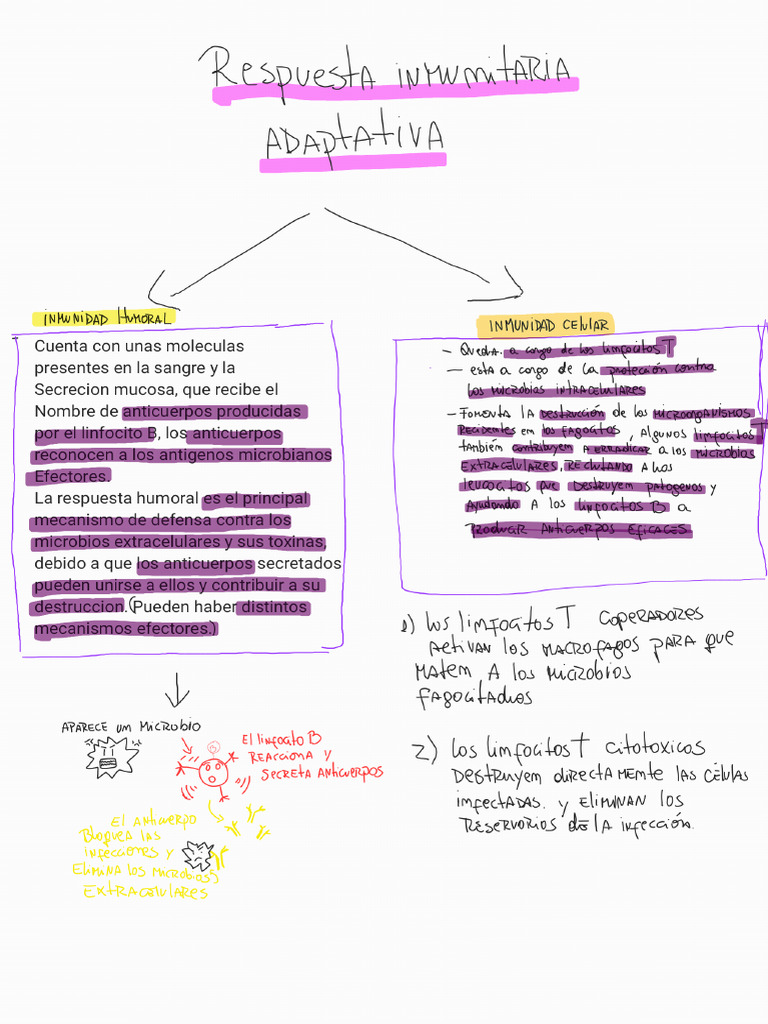 Respuesta inmunitaria
adaptativa
inmunidad Humoral
Cuenta con unas moleculas
presentes en la sangre y la
Secrecion mucosa, que recibe el
Nombre de anticuerpos producidas
por el linfocito B, los anticuerpos
reconocen a los antigenos microbianos
Efectores.
La respuesta humoral es el principal
mecanismo de defensa contra los
microbios extracelulares y sus toxinas,
debido a que los anticuerpos secretados
pueden unirse a ellos y contribuir a su
destruccion.(Pueden haber distintos
mecanismos efectores.)
Aparece un microbio
El linfocito B
Reacciona y
secreta anticuerpos
El anticuerpo
Bloquea las
infecciones y
Elimina los microbios
Extracelulares
inmunidad celular
- Queda a cargo de los linfocitos T
- esta a cargo de la protección contra
los microbios intracelulares
- Fomenta la destrucción de los microorganismos
Recidentes en los fagocitos, Algunos linfocitos T
también contribuyen a erradicar a los microbios
Extracelulares, reclutando a los
leucocitos que destruyen patogenos y
Ayudando a los linfocitos B a
Producir anticuerpos eficaces
1) Los linfocitos T coperadores
activan los macrofagos para que
maten a los microbios
fagocitados
2) Los linfocitos T citotoxicos
Destruyen directamente las células
infectadas. y eliminan los
Reservorios de la infección.